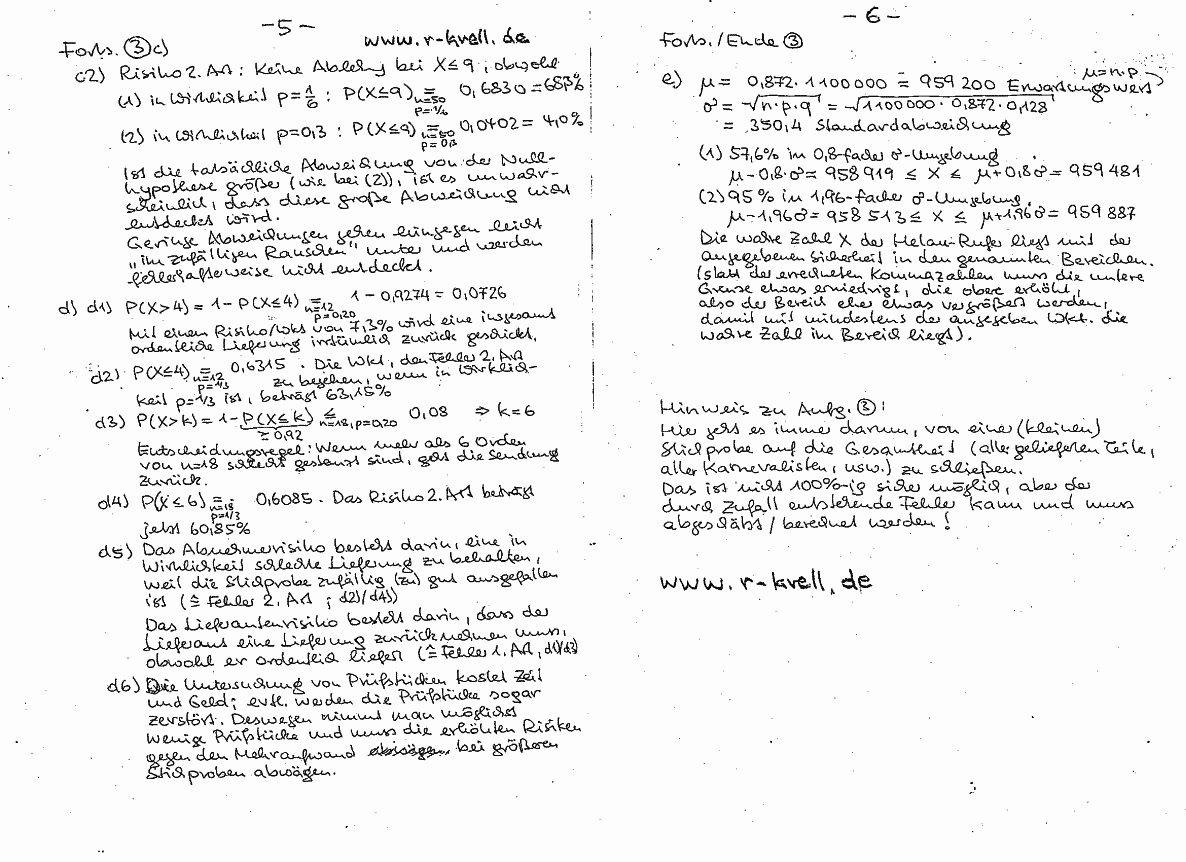 -5-
Forts. ③c)
www.r-krell.de
c2) Risiko 2. Art: Keine Ablehng bei X≤9, obwohl
(1) in Wirklichkeit p=1/6 : P(X≤9) = 0,6830 = 68,3%
n=50
p=1/6
(2) in Wirklichkeit p=0,3 : P(X≤9) = 0,0402 = 4,0%
n=50
p=0,3
Ist die tatsächliche Abweichung von der Null-
hypothese größer (wie bei (2)), ist es unwahr-
scheinlich, dass diese große Abweichung nicht
entdeckt wird.
Geringe Abweichungen gehen hingegen leicht
"im zufälligen Rauschen" unter und werden
fehlerhafterweise nicht entdeckt.
d) d1) P(X>4) = 1-P(X≤4) = 1-0,9274 = 0,0726
n=12
p=0,20
Mit einem Risiko/Wkt von 7,3% wird eine insgesamt
ordentliche Lieferung irrtümlich zurück geschickt.
d2) P(X≤4) = 0,6315. Die Wkt, den Fehler 2. Art
n=12
p=1/3
zu begehen, wenn in Wirklich-
keit p=1/3 ist, beträgt 63,15%
d3) P(X>k) = 1-P(X≤k) ≤ 0,08 ⇒ k=6
n=18, p=0,20
≈0,92
Entscheidungsregel: Wenn mehr als 6 Orden
von n=18 schlecht gestanzt sind, geht die Sendung
zurück.
d4) P(X≤6) = 0,6085. Das Risiko 2. Art beträgt
n=18
p=1/3
jetzt 60,85%
d5) Das Abnehmerrisiko besteht darin, eine in
Wirklichkeit schlechte Lieferung zu behalten,
weil die Stichprobe zufällig (zu) gut ausgefallen
ist (≙ Fehler 2. Art ; d2)/d4))
Das Lieferantenrisiko besteht darin, dass der
Lieferant eine Lieferung zurücknehmen muss,
obwohl er ordentlich liefert (≙ Fehler 1. Art, d1)/d3)
d6) Die Untersuchung von Prüfstücken kostet Zeit
und Geld; evtl. werden die Prüfstücke sogar
zerstört. Deswegen nimmt man möglichst
wenige Prüfstücke und muss die erhöhten Risiken
gegen den Mehraufwand bei größeren
Stichproben abwägen.
-6-
Forts./Ende ③
e) μ = 0,872·1100000 = 959200 Erwartungswert
μ=n·p
σ = √n·p·q = √1100000·0,872·0,128
= 350,4 Standardabweichung
(1) 57,6% in 0,8-facher σ-Umgebung
μ-0,8·σ = 958919 ≤ X ≤ μ+0,8σ = 959481
(2) 95% in 1,96-facher σ-Umgebung
μ-1,96σ = 958513 ≤ X ≤ μ+1,96σ = 959887
Die wahre Zahl X der Helau-Rufer liegt mit der
angegebenen Sicherheit in den genannten Bereichen.
(statt der errechneten Kommazahlen muss die untere
Grenze etwas erniedrigt, die obere erhöht,
also der Bereich eher etwas vergrößert werden,
damit mit mindestens der angegeben Wkt. die
wahre Zahl im Bereich liegt).
Hinweis zu Aufg. ③:
Hier geht es immer darum, von einer (kleinen)
Stichprobe auf die Gesamtheit (aller gelieferten Teile,
aller Karnevalisten, usw.) zu schließen.
Das ist nicht 100%-ig sicher möglich, aber der
durch Zufall entstehende Fehler kann und muss
abgeschätzt/berechnet werden!
www.r-krell.de